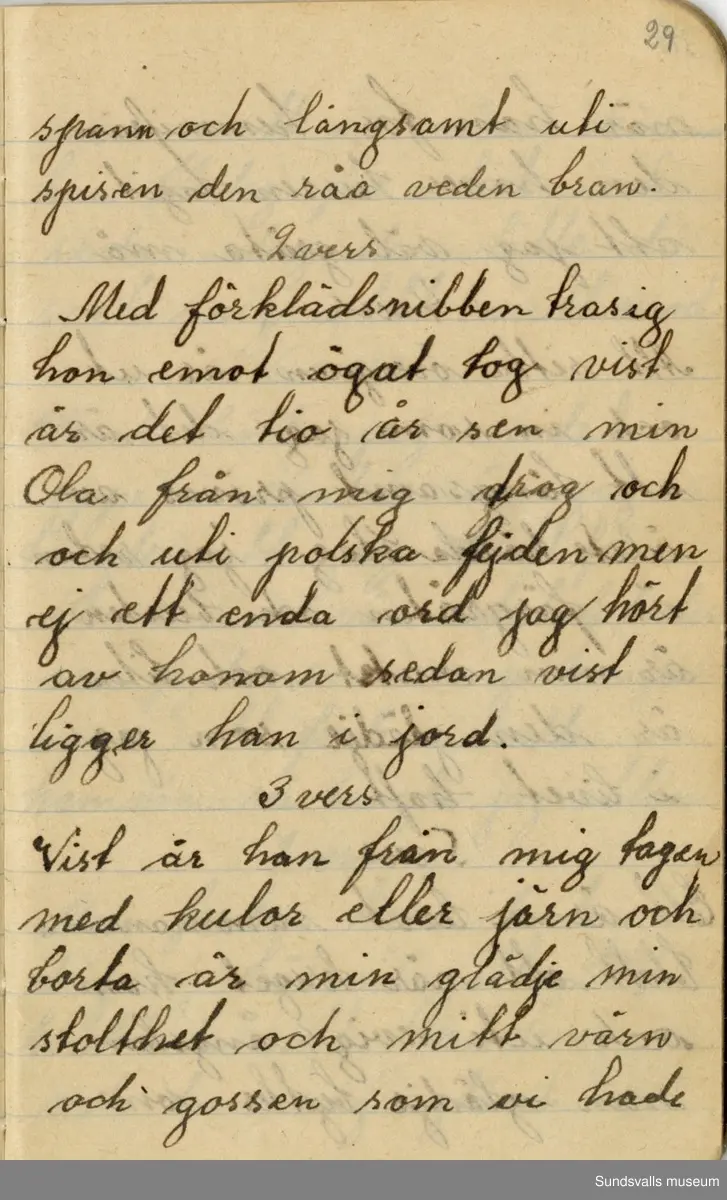 29
spann och långsamt uti
spisen den råa veden bran.
2 vers
Med förklädsnibben trasig
hon emot ögat tog vist
är det tio år sen min
Ola från mig drog och
och uti polska fejden men
ej ett enda ord jag hört
av honom sedan vist
ligger han i jord.
3 vers
Vist är han från mig tagen
med kulor eller järn och
borta är min glädje min
stolthet och mitt värn
och gossen som vi hade
Sundsvalls museum